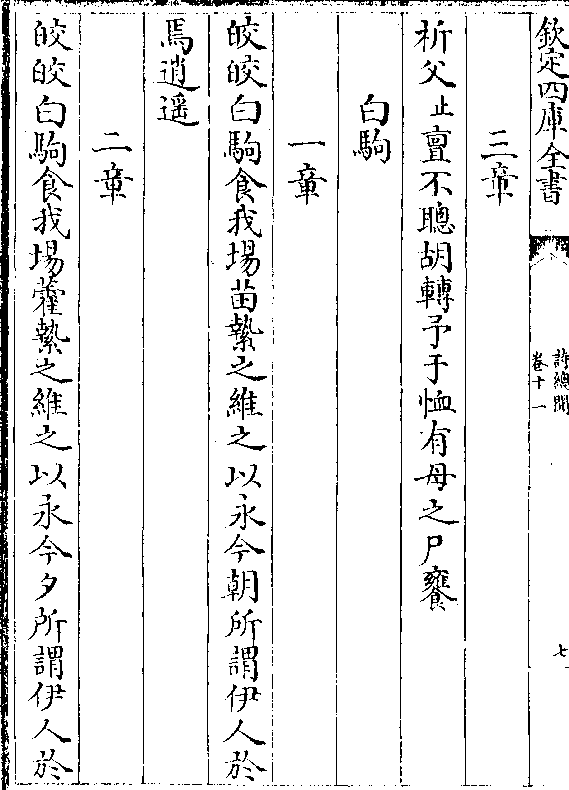 欽定四庫全書
詩總聞
卷十一
七
三章
祈父止亶不聰胡轉予于恤有母之尸饔
白駒
一章
皎皎白駒食我場苗縶之維之以永今朝所謂伊人於
焉逍遥
二章
皎皎白駒食我場藿縶之維之以永今夕所謂伊人於